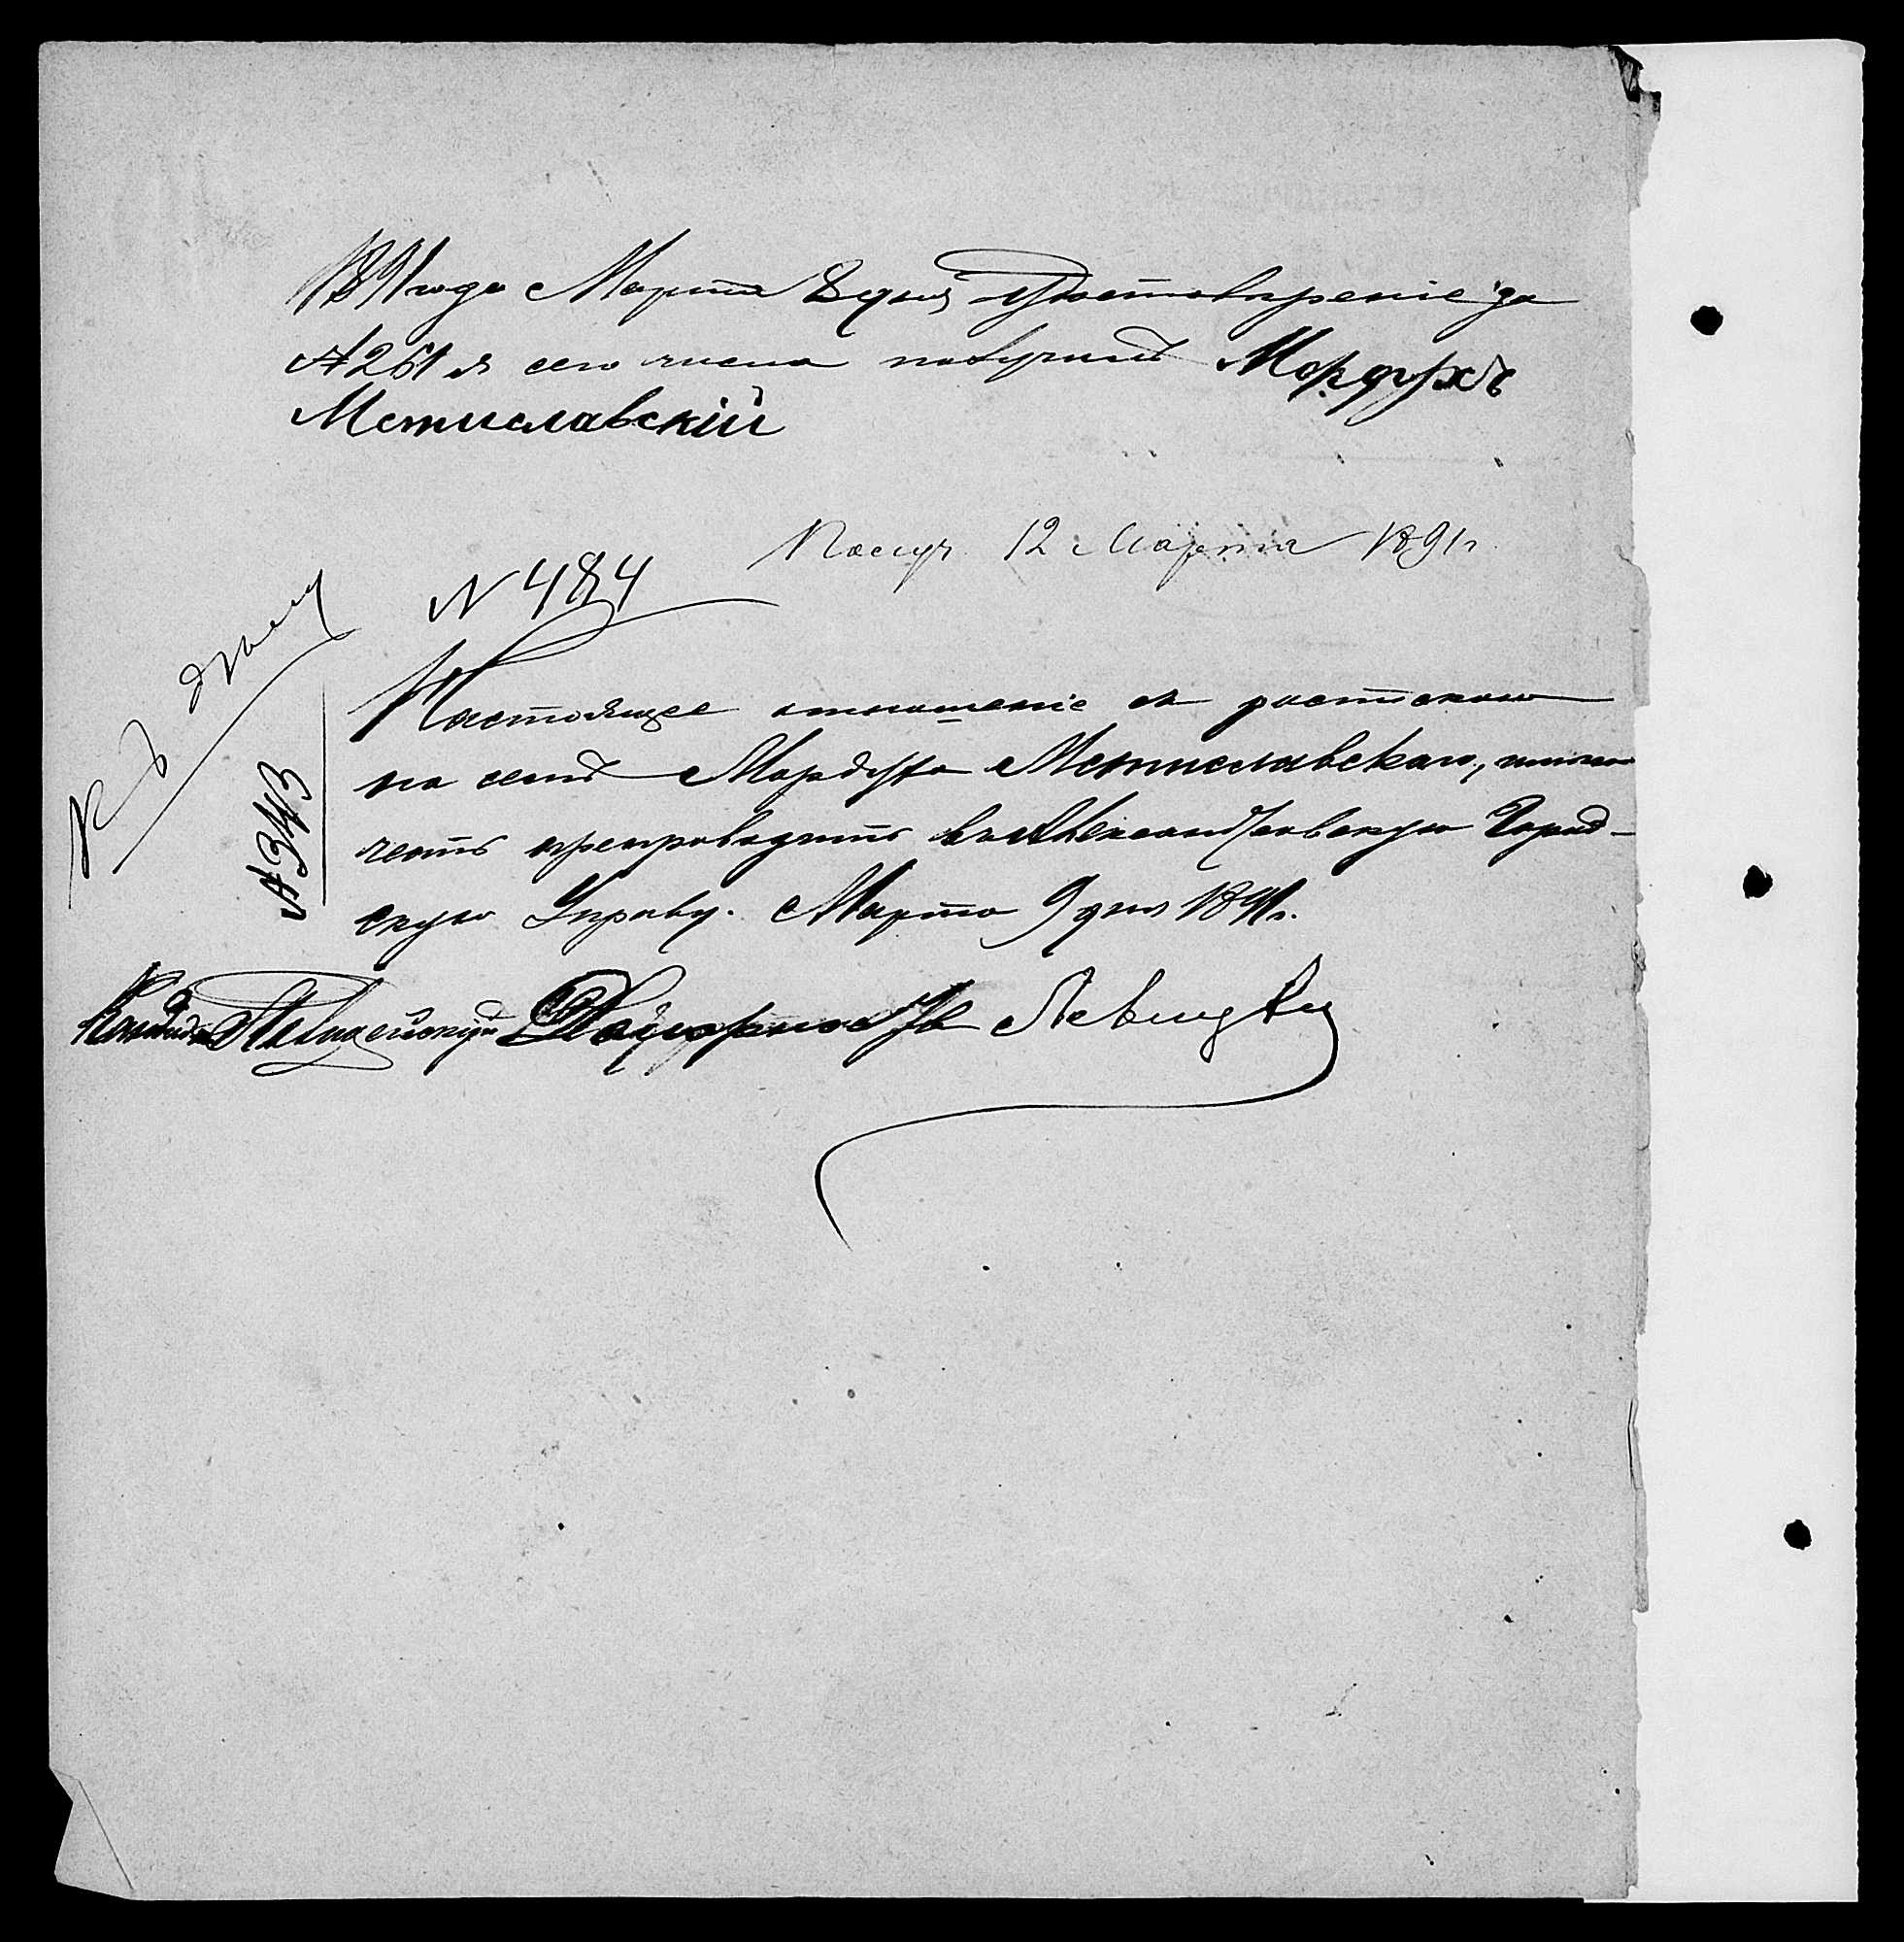 1891 года Марта 8 дня Удостовѣреніе за
№ 261 м сего числа получилъ Мордухъ
Мстиславскій
Получ. 12 Марта 1891 г.
№ 484
Къ дѣлу
№ 343
Настоящее отношеніе съ роспискою
на семъ Мордуха Мстиславскаго, имѣю
честь препроводить въ Александровскую Город-
скую Управу. Марта 9 дня 1891 г.
Полицейскій Левицкій